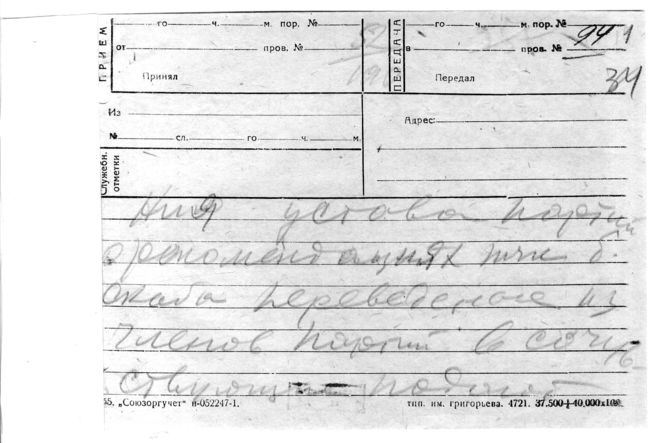 ПРИЕМ
го ч. м. пор. №
от пров. № 52
19
Принял
ПЕРЕДАЧА
го ч. м. пор. №
в пров. № 94 1
Передал 34
Из
№ сл. го ч. м.
Адрес:
Служебн. отметки
ния устава партии
о рекомендациях тчк б.
переведеные из
членов партии в сочу
ствующие подают
65. „Союзоргучет" н-052247-1. тип. им. григорьева. 4721. 37.500+40.000х100.